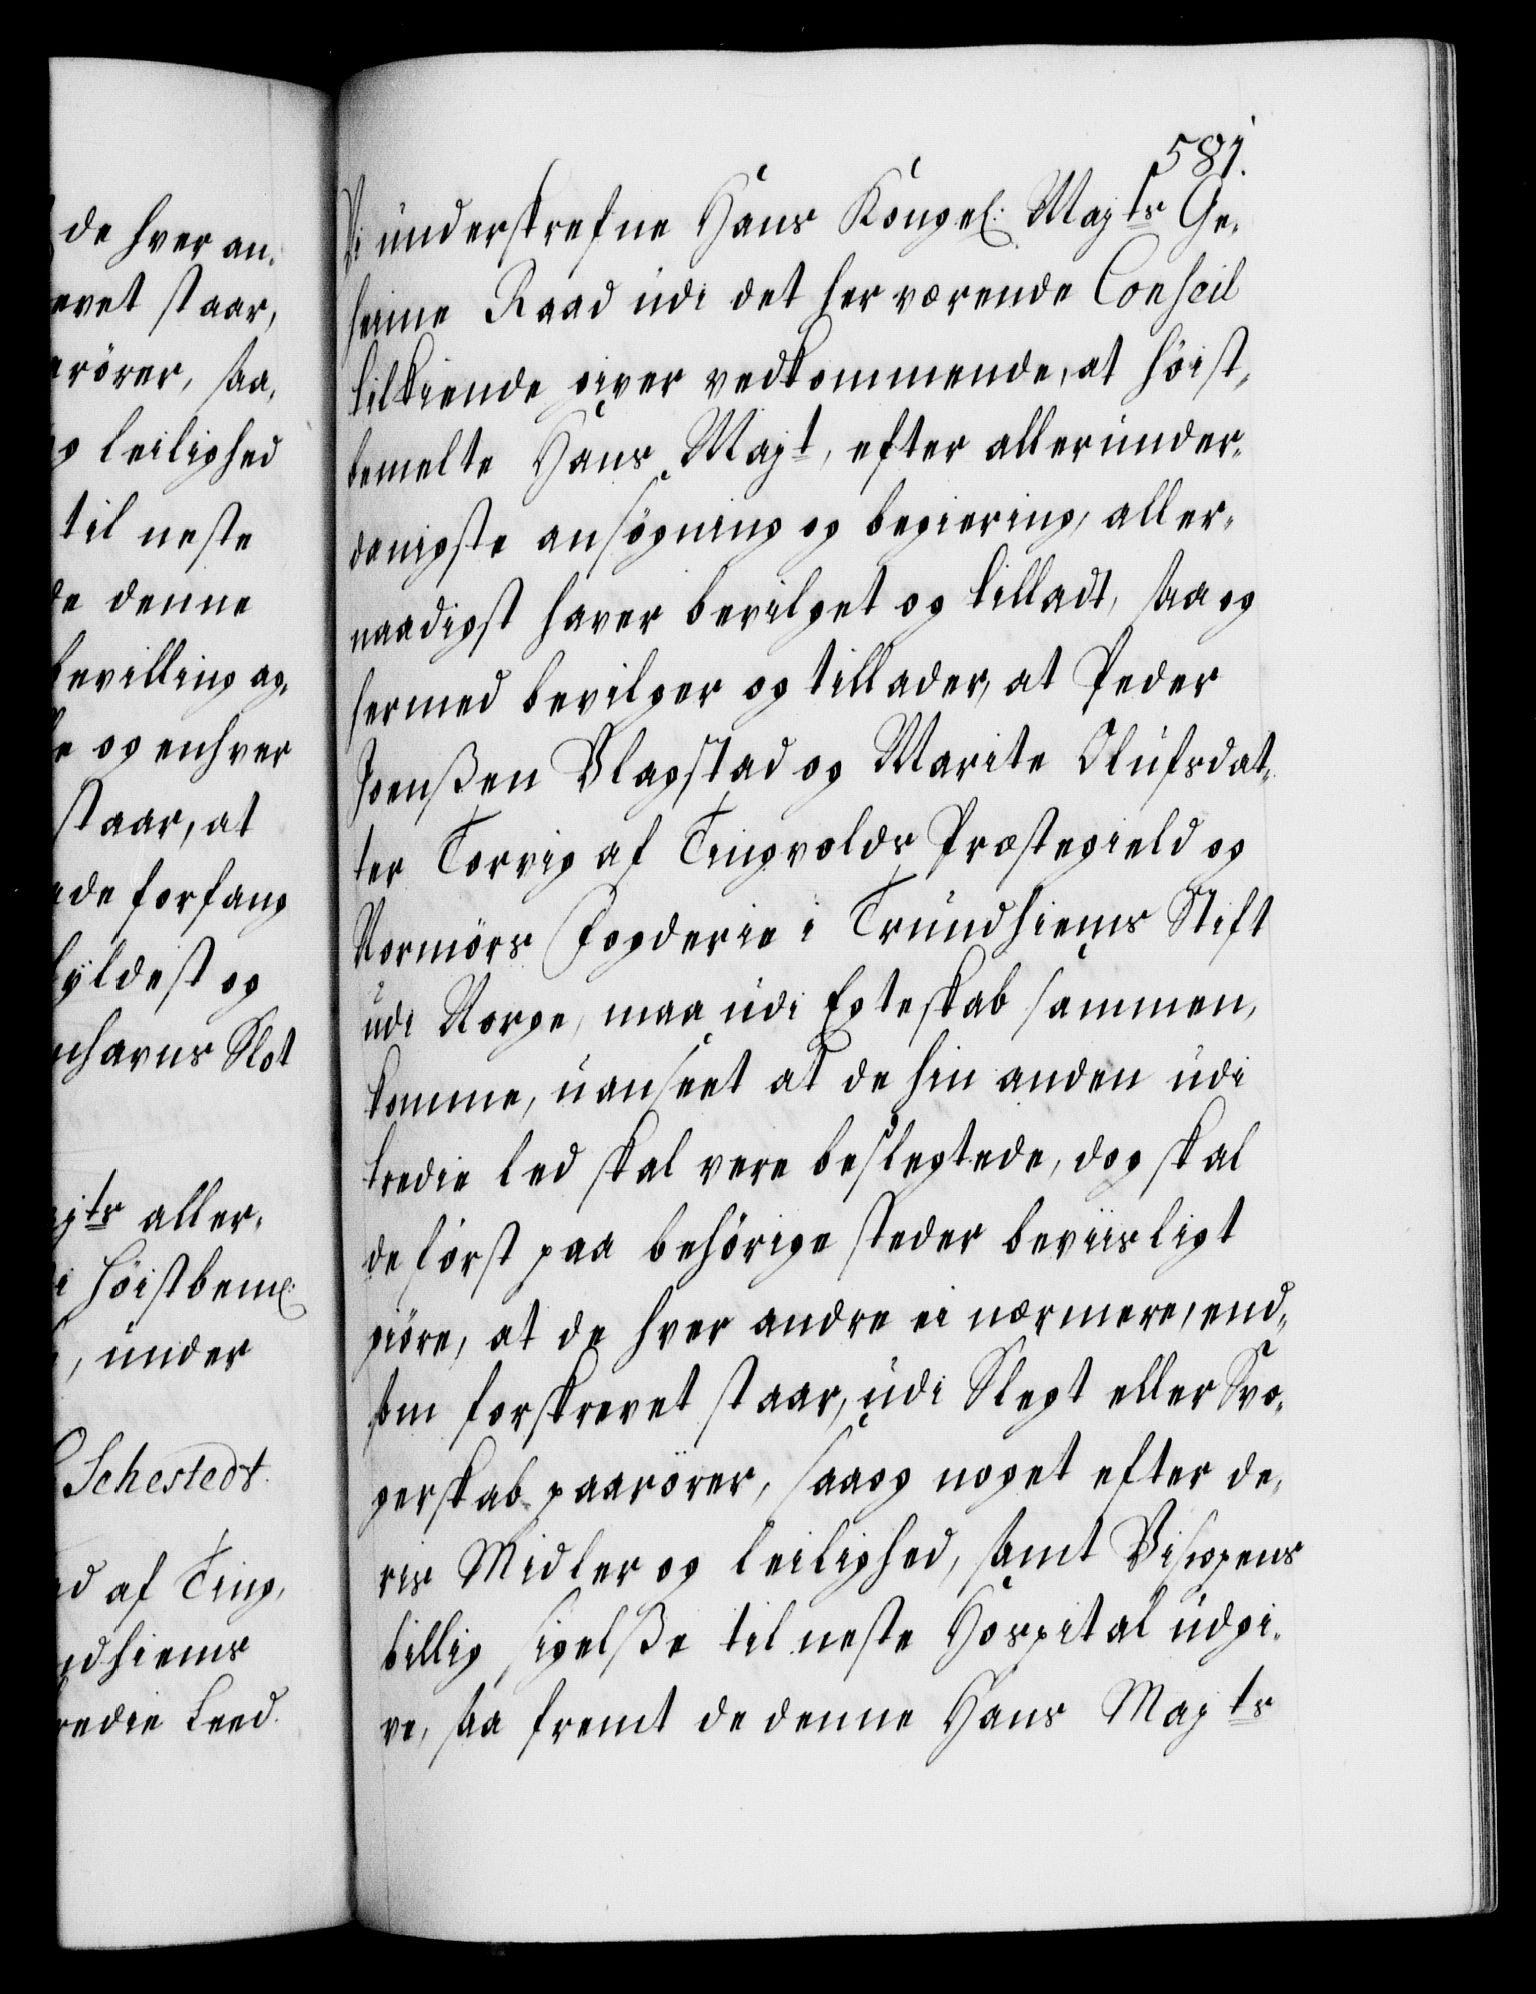 de hver an„
evet staar,
rörer, saa„
leilighed
til neste
denne
bevilling ag„
og enhver
staar, at
forfang
hyldest og
nhavns Slot
gts aller„
höistbem:
, under
Schestedt.
af Ting„
dhiems
tredie Leed.
581.
Vi underskrefne Hans Kongel: Majts Ge„
heime Raad udi det her værende Conseil
tilkiende giver vedkommende, at höist„
bemelte Hans Majt, efter allerunder„
danigste ansögning og begiering, aller„
naadigst haver bevilget og tilladt, saa og
hermed bevilger og tillader, at Peder
Joenßen Blagstad og Marite Olufsdat„
ter Torvig af Tingvolds Præstegield og
Normörs Fogderie i Trundhiems Stift
udi Norge, maa udi Egteskab sammen„
komme, uanseet at de hin anden udi
tredie led skal vere beslegtede, dog skal
de först paa behörige steder beviisligt
giöre, at de hver andre ei nærmere, end„
som forskrevet staar, udi Slegt eller Svo„
gerskab paarörer, saa og noget efter de„
ris Midler og leilighed, samt Bisopens
billig sigelße til neste Hospital udgi„
ve, saa fremt de denne Hans Majts